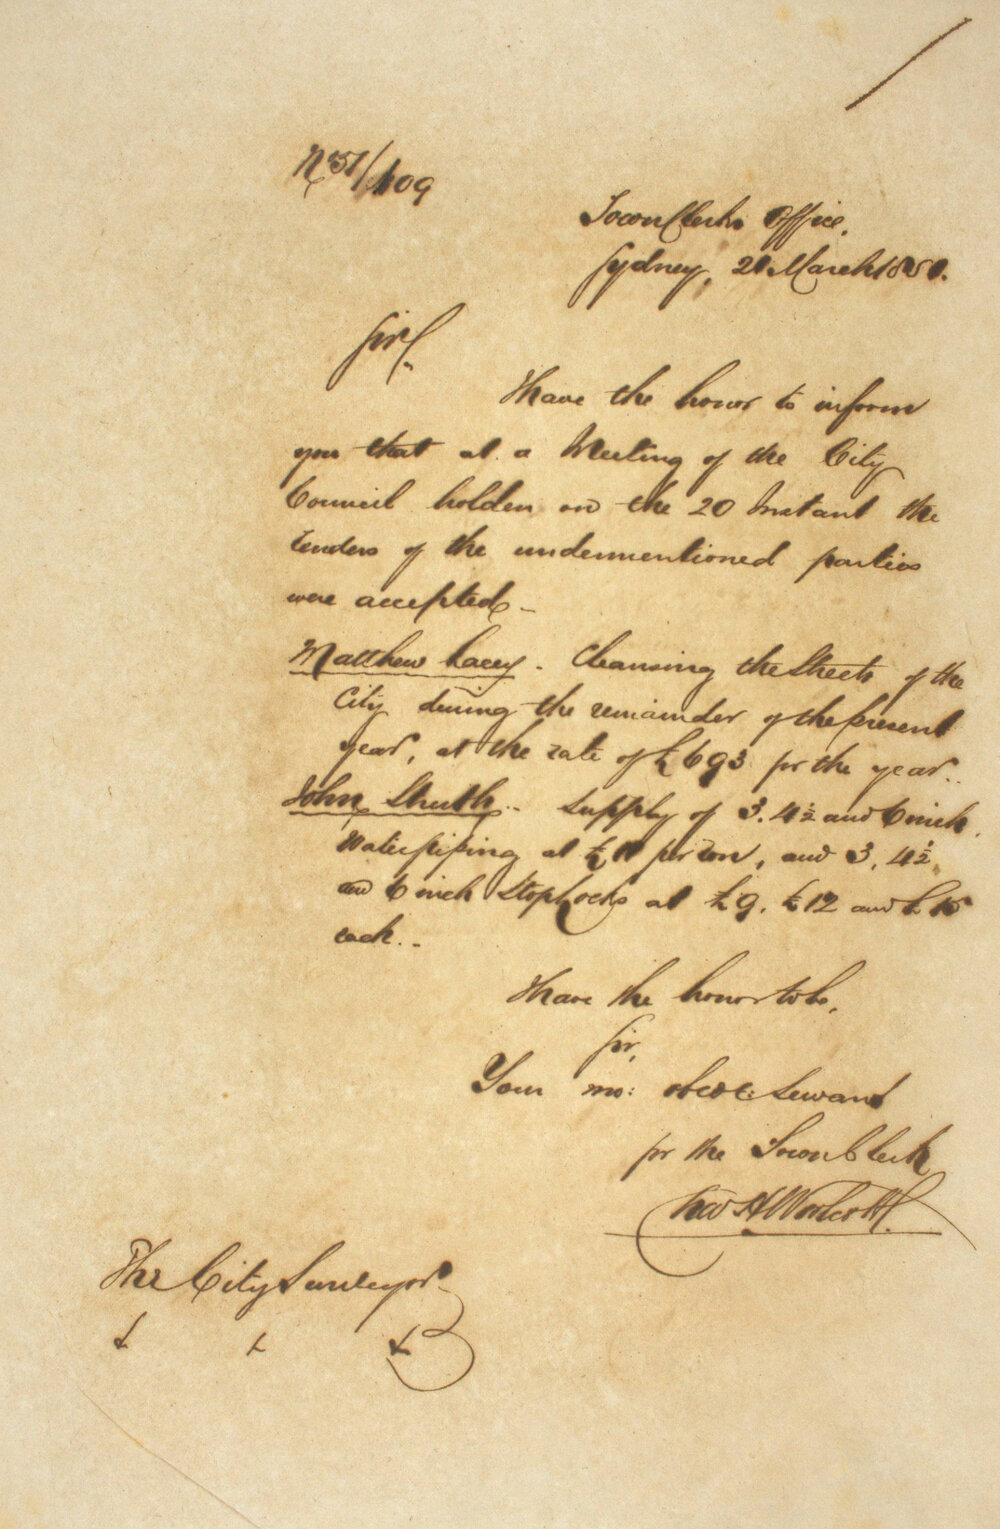 Town Clerk's Office,
Sydney, 21 March 1851.
Sir,
I have the honor to inform
you that at a Meeting of the City
Council holden on the 20 Instant the
tenders of the undermentioned parties
were accepted -
Matthew Lacey - Cleansing the Streets of the
City during the remainder of the present
year, at the rate of £693 pr the year.
John Struth - Supply of 3. 4½ and 6 inch
Waterpiping at £11 per ton, and 3, 4½
and 6 inch Stopcocks at £9. £12 and £15
each. -
I have the honor to be,
Sir,
Your mo: obedt: Servant
pr the Town Clerk
The City Surveyor
& & &